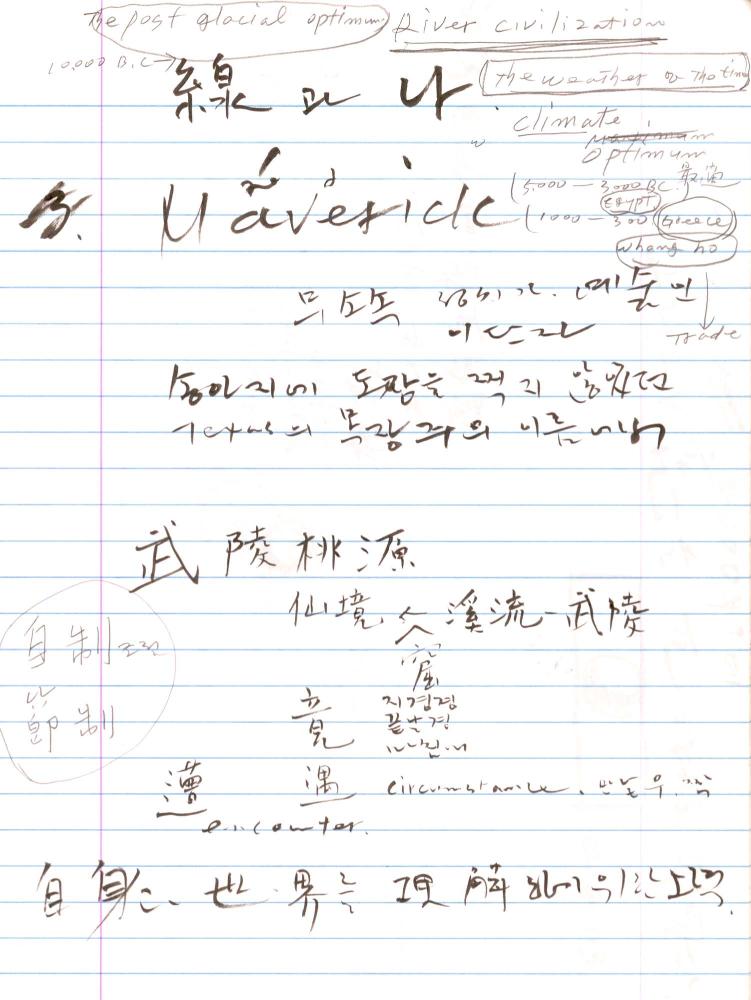 The post glacial optimum River civilization
10,000 B.C→
The weather & The time
線과 나
climate
optimum
最適
5,000 — 3000 BC
Egypt
3. Maverick
1000 — 300 Greece
Whang ho
무소속 정치가. 예술인
이단자
Trade
송아지에 도장을 찍지 않았던
Texas의 목장주의 이름에서
武陵桃源
仙境 溪流-武陵
自制
窟
節制
竟 지경경
끝날경
遭 遇 circumstance.
encounter.
自身 世界를 理解하기 위한 노력.